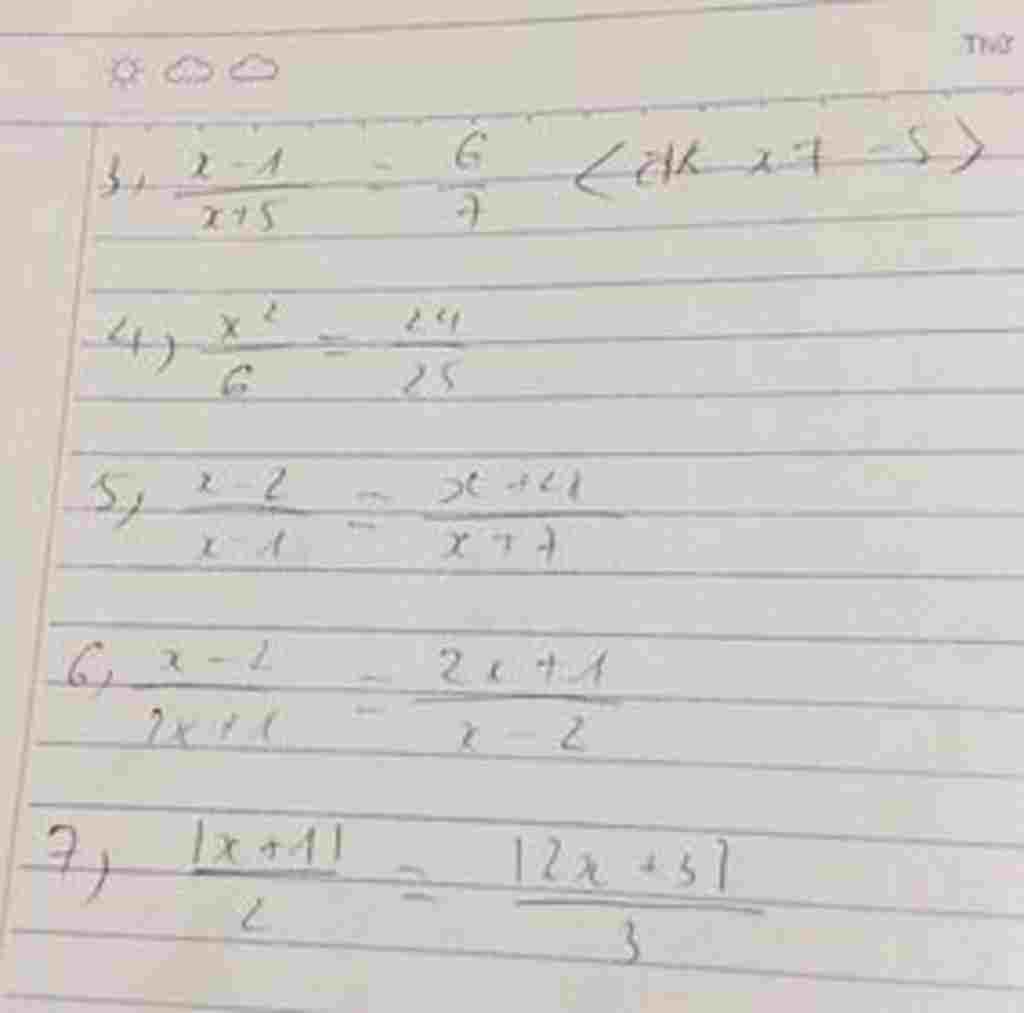 TNB
3, x - 1 / x + 5 = 6 / 7 (đk x ≠ -5)
4) x² / 6 = 24 / 25
5, x - 2 / x - 1 = x + 4 / x + 7
6, x - 2 / 2x + 1 = 2x + 1 / x - 2
7) |x + 1| / 2 = |2x + 3| / 3